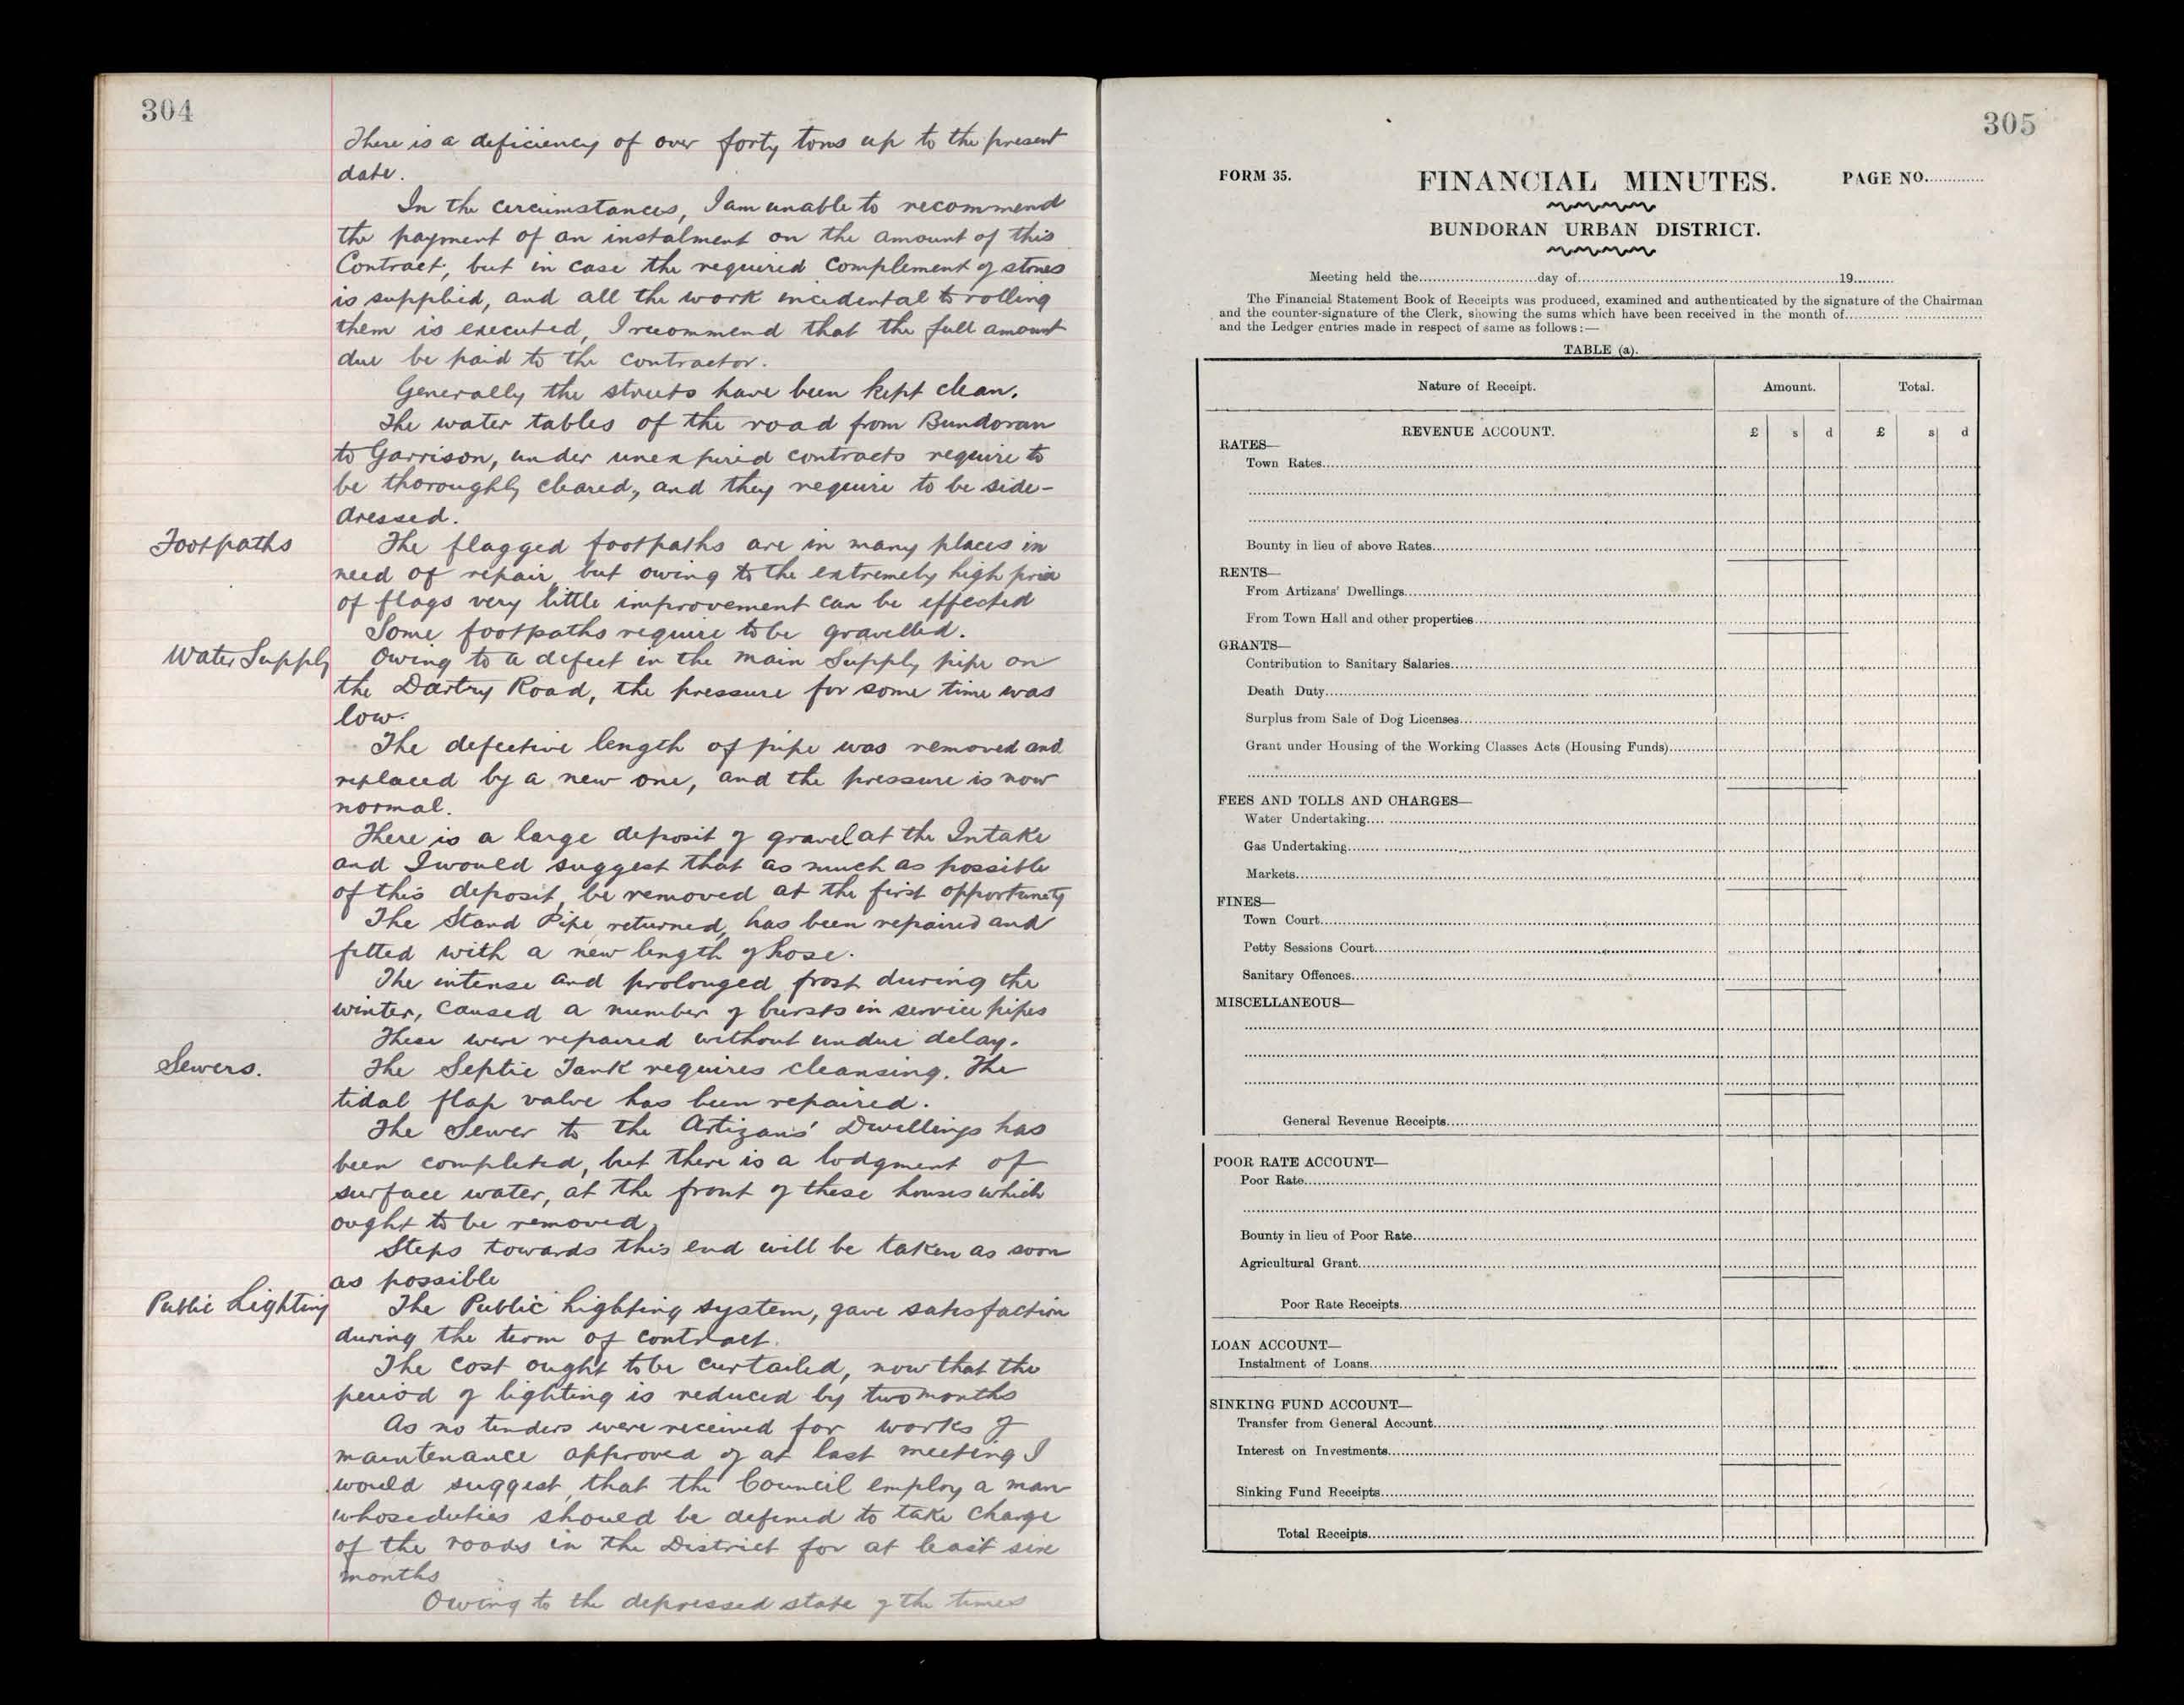 304
There is a deficiency of over forty tons up to the present
date.
In the circumstances, I am unable to recommend
the payment of an instalment on the amount of this
Contract, but in case the required complement of stones
is supplied, and all the work incidental to rolling
them is executed, I recommend that the full amount
due be paid to the contractor.
Generally the streets have been kept clean.
The water tables of the road from Bundoran
to Garrison, under unexpired contracts require to
be thoroughly cleared, and they require to be side-
dressed.
Footpaths
The flagged footpaths are in many places in
need of repair, but owing to the extremely high price
of flags very little improvement can be effected
Some footpaths require to be gravelled.
Water Supply
Owing to a defect in the main Supply pipe on
the Dartry Road, the pressure for some time was
low.
The defective length of pipe was removed and
replaced by a new one, and the pressure is now
normal.
There is a large deposit of gravel at the Intake
and I would suggest that as much as possible
of this deposit, be removed at the first opportunity
The Stand Pipe returned, has been repaired and
fitted with a new length of hose.
The intense and prolonged frost during the
winter, caused a number of bursts in service pipes
These were repaired without undue delay.
Sewers.
The Septic Tank requires cleansing. The
tidal flap valve has been repaired.
The Sewer to the Artizans' Dwellings has
been completed, but there is a lodgment of
surface water, at the front of these houses which
ought to be removed.
Steps towards this end will be taken as soon
as possible
Public Lighting
The Public Lighting system, gave satisfaction
during the term of contract.
The cost ought to be curtailed, now that the
period of lighting is reduced by two months
As no tenders were received for works of
maintenance approved of at last meeting I
would suggest, that the Council employ a man
whose duties should be defined to take charge
of the roads in the District for at least six
months
Owing to the depressed state of the times
305
FORM 35.
FINANCIAL MINUTES.
PAGE NO............
BUNDORAN URBAN DISTRICT.
Meeting held the..............................day of..............................19.........
The Financial Statement Book of Receipts was produced, examined and authenticated by the signature of the Chairman
and the counter-signature of the Clerk, showing the sums which have been received in the month of..............................
and the Ledger entries made in respect of same as follows:—
TABLE (a).
Nature of Receipt. Amount. Total.
REVENUE ACCOUNT. £ s d £ s d
RATES—
Town Rates
Bounty in lieu of above Rates
RENTS—
From Artizans' Dwellings
From Town Hall and other properties
GRANTS—
Contribution to Sanitary Salaries
Death Duty
Surplus from Sale of Dog Licenses
Grant under Housing of the Working Classes Acts (Housing Funds)
FEES AND TOLLS AND CHARGES—
Water Undertaking
Gas Undertaking
Markets
FINES—
Town Court
Petty Sessions Court
Sanitary Offences
MISCELLANEOUS—
General Revenue Receipts
POOR RATE ACCOUNT—
Poor Rate
Bounty in lieu of Poor Rate
Agricultural Grant
Poor Rate Receipts
LOAN ACCOUNT—
Instalment of Loans
SINKING FUND ACCOUNT—
Transfer from General Account
Interest on Investments
Sinking Fund Receipts
Total Receipts